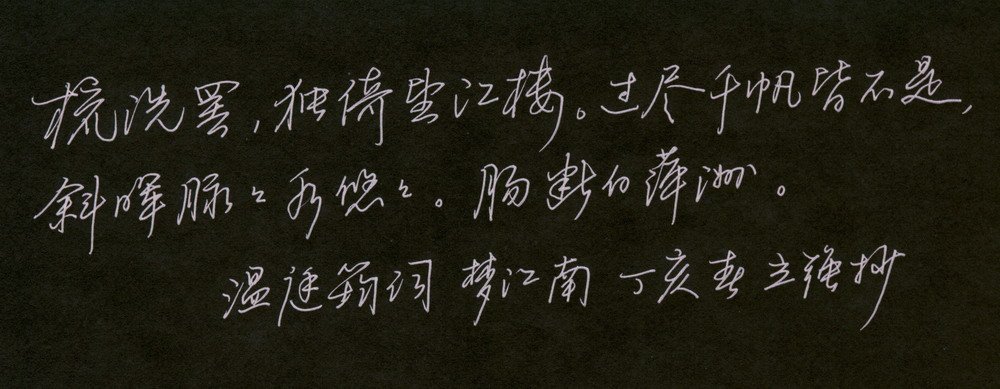 梳洗罢,独倚望江楼。过尽千帆皆不是,
斜晖脉々水悠々。肠断白萍洲。
温庭筠词 梦江南 丁亥春立强抄